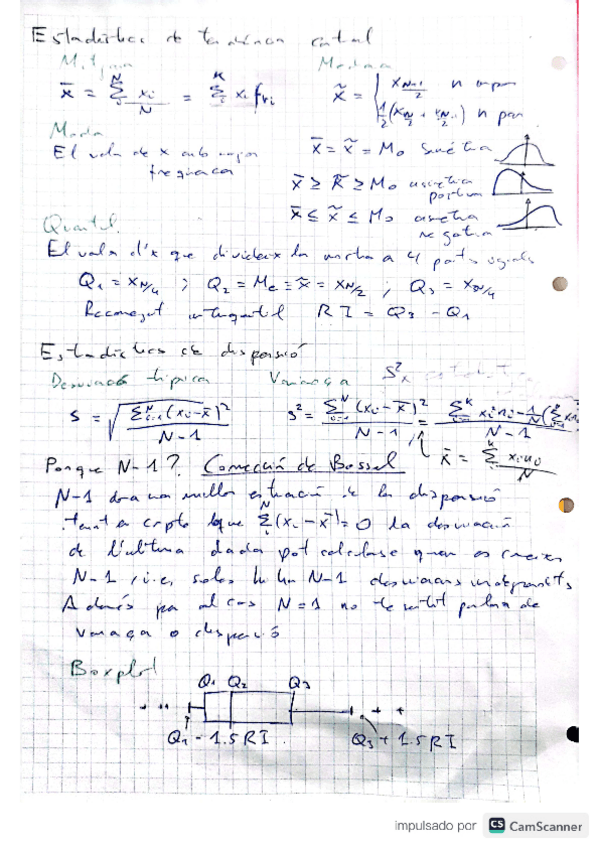 Estadístics de tendència central
Mitjana
x̄ = Σ xi/N = Σ xi fri
Mediana
x̃ = { x_(N+1)/2 n impar
½(x_N/2 + x_N/2+1) n par
Moda
El valor de x amb major
freqüència
x̄ = x̃ = Mo Simètrica
x̄ ≥ x̃ ≥ Mo asimètrica
positiva
x̄ ≤ x̃ ≤ Mo asimetria
negativa
Quartil
El valor d'x que divideix la mostra a 4 parts iguals
Q1 = x_N/4 ; Q2 = Me = x̃ = x_N/2 ; Q3 = x_3N/4
Recorregut interquartil RI = Q3 - Q1
Estadístics de dispersió
Desviació típica
Variança
S²x
s = √(Σ(xi - x̄)² / N-1)
s² = Σ(xi - x̄)² / N-1 =
x̄ = Σ xi ni / N
Porque N-1? Correcció de Bessel
N-1 dona una millor estimació de la dispersió
tenint en compte que Σ(xi - x̄) = 0 la desviació
de l'última dada pot calcularse quan es coneixen
N-1 i.e. soles hi ha N-1 desviacions independents
Además per al cas N=1 no té sentit parlar de
variança o dispersió
Boxplot
Q1 Q2 Q3
Q1 - 1.5 RI Q3 + 1.5 RI
impulsado por CS CamScanner